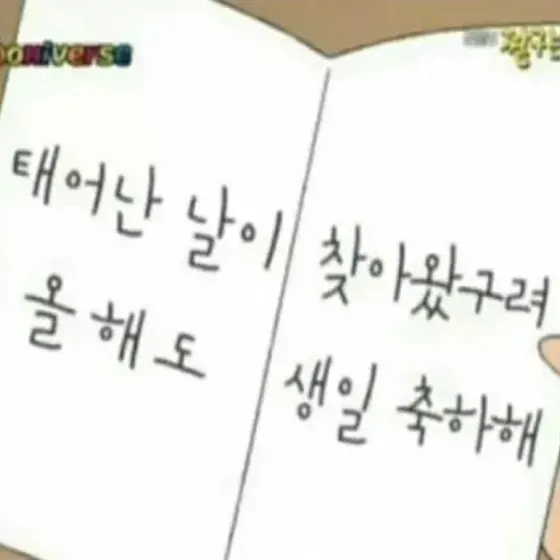 ooniverse
짱구는
태어난 날이 찾아왔구려
올해도 생일 축하해